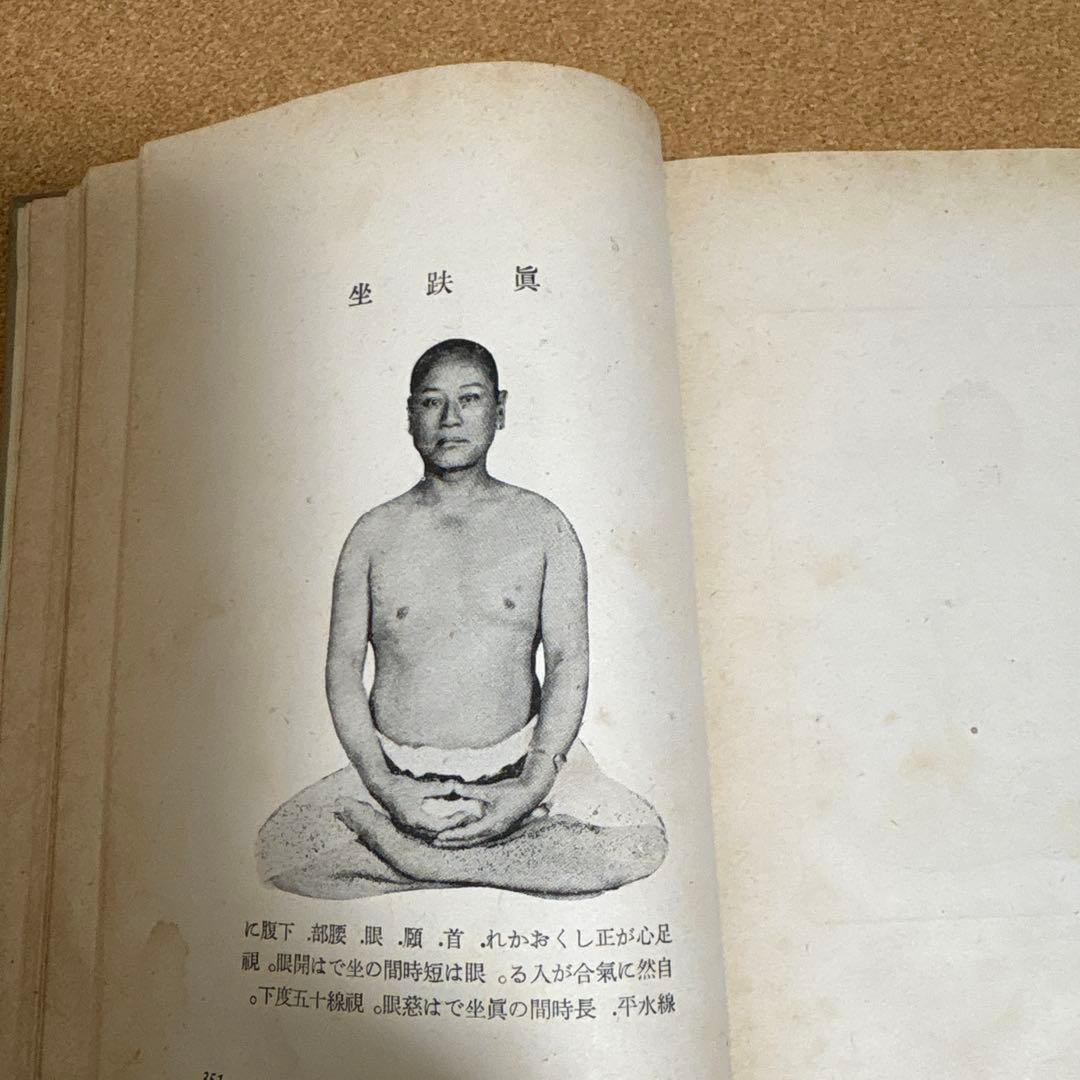 眞趺坐
足心が正しくおかれ. 首. 顧. 眼. 腰部. 下腹に
自然に氣合が入る。眼は短時間の坐では開眼。視
線水平. 長時間の眞坐では慈眼。視線十五度下。